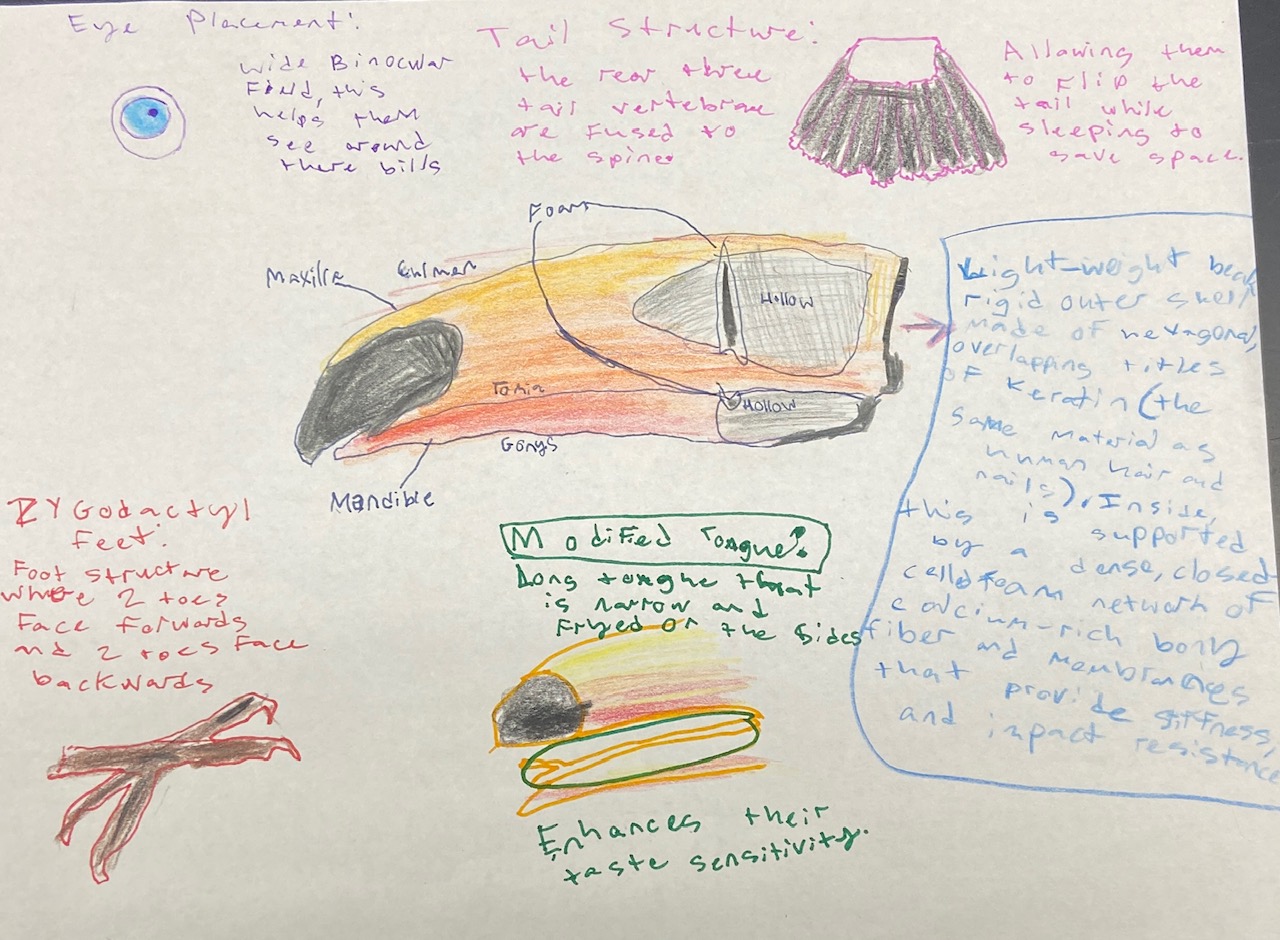 Eye Placement:
Wide Binocular
Field, this
helps them
see around
there bills
Tail Structure:
the rear three
tail vertebrae
are fused to
the spine.
Allowing them
to flip the
tail while
sleeping to
save space.
Foam
Maxilla
Culmen
Hollow
Tomia
Hollow
Gonys
Mandible
Light-weight beak
rigid outer shell
made of hexagonal,
overlapping titles
of Keratin (the
same material as
human hair and
nails). Inside,
this is supported
by a dense, closed
cell foam network of
calcium-rich bony
fiber and membranes
that provide stiffness,
and inpact resistance
ZYGodactyl
Feet:
Foot structure
where 2 toes
Face forwards
and 2 toes Face
backwards
Modified Tongue:
Long tongue that
is narrow and
Fryed on the sides
Enhances their
taste sensitivity.